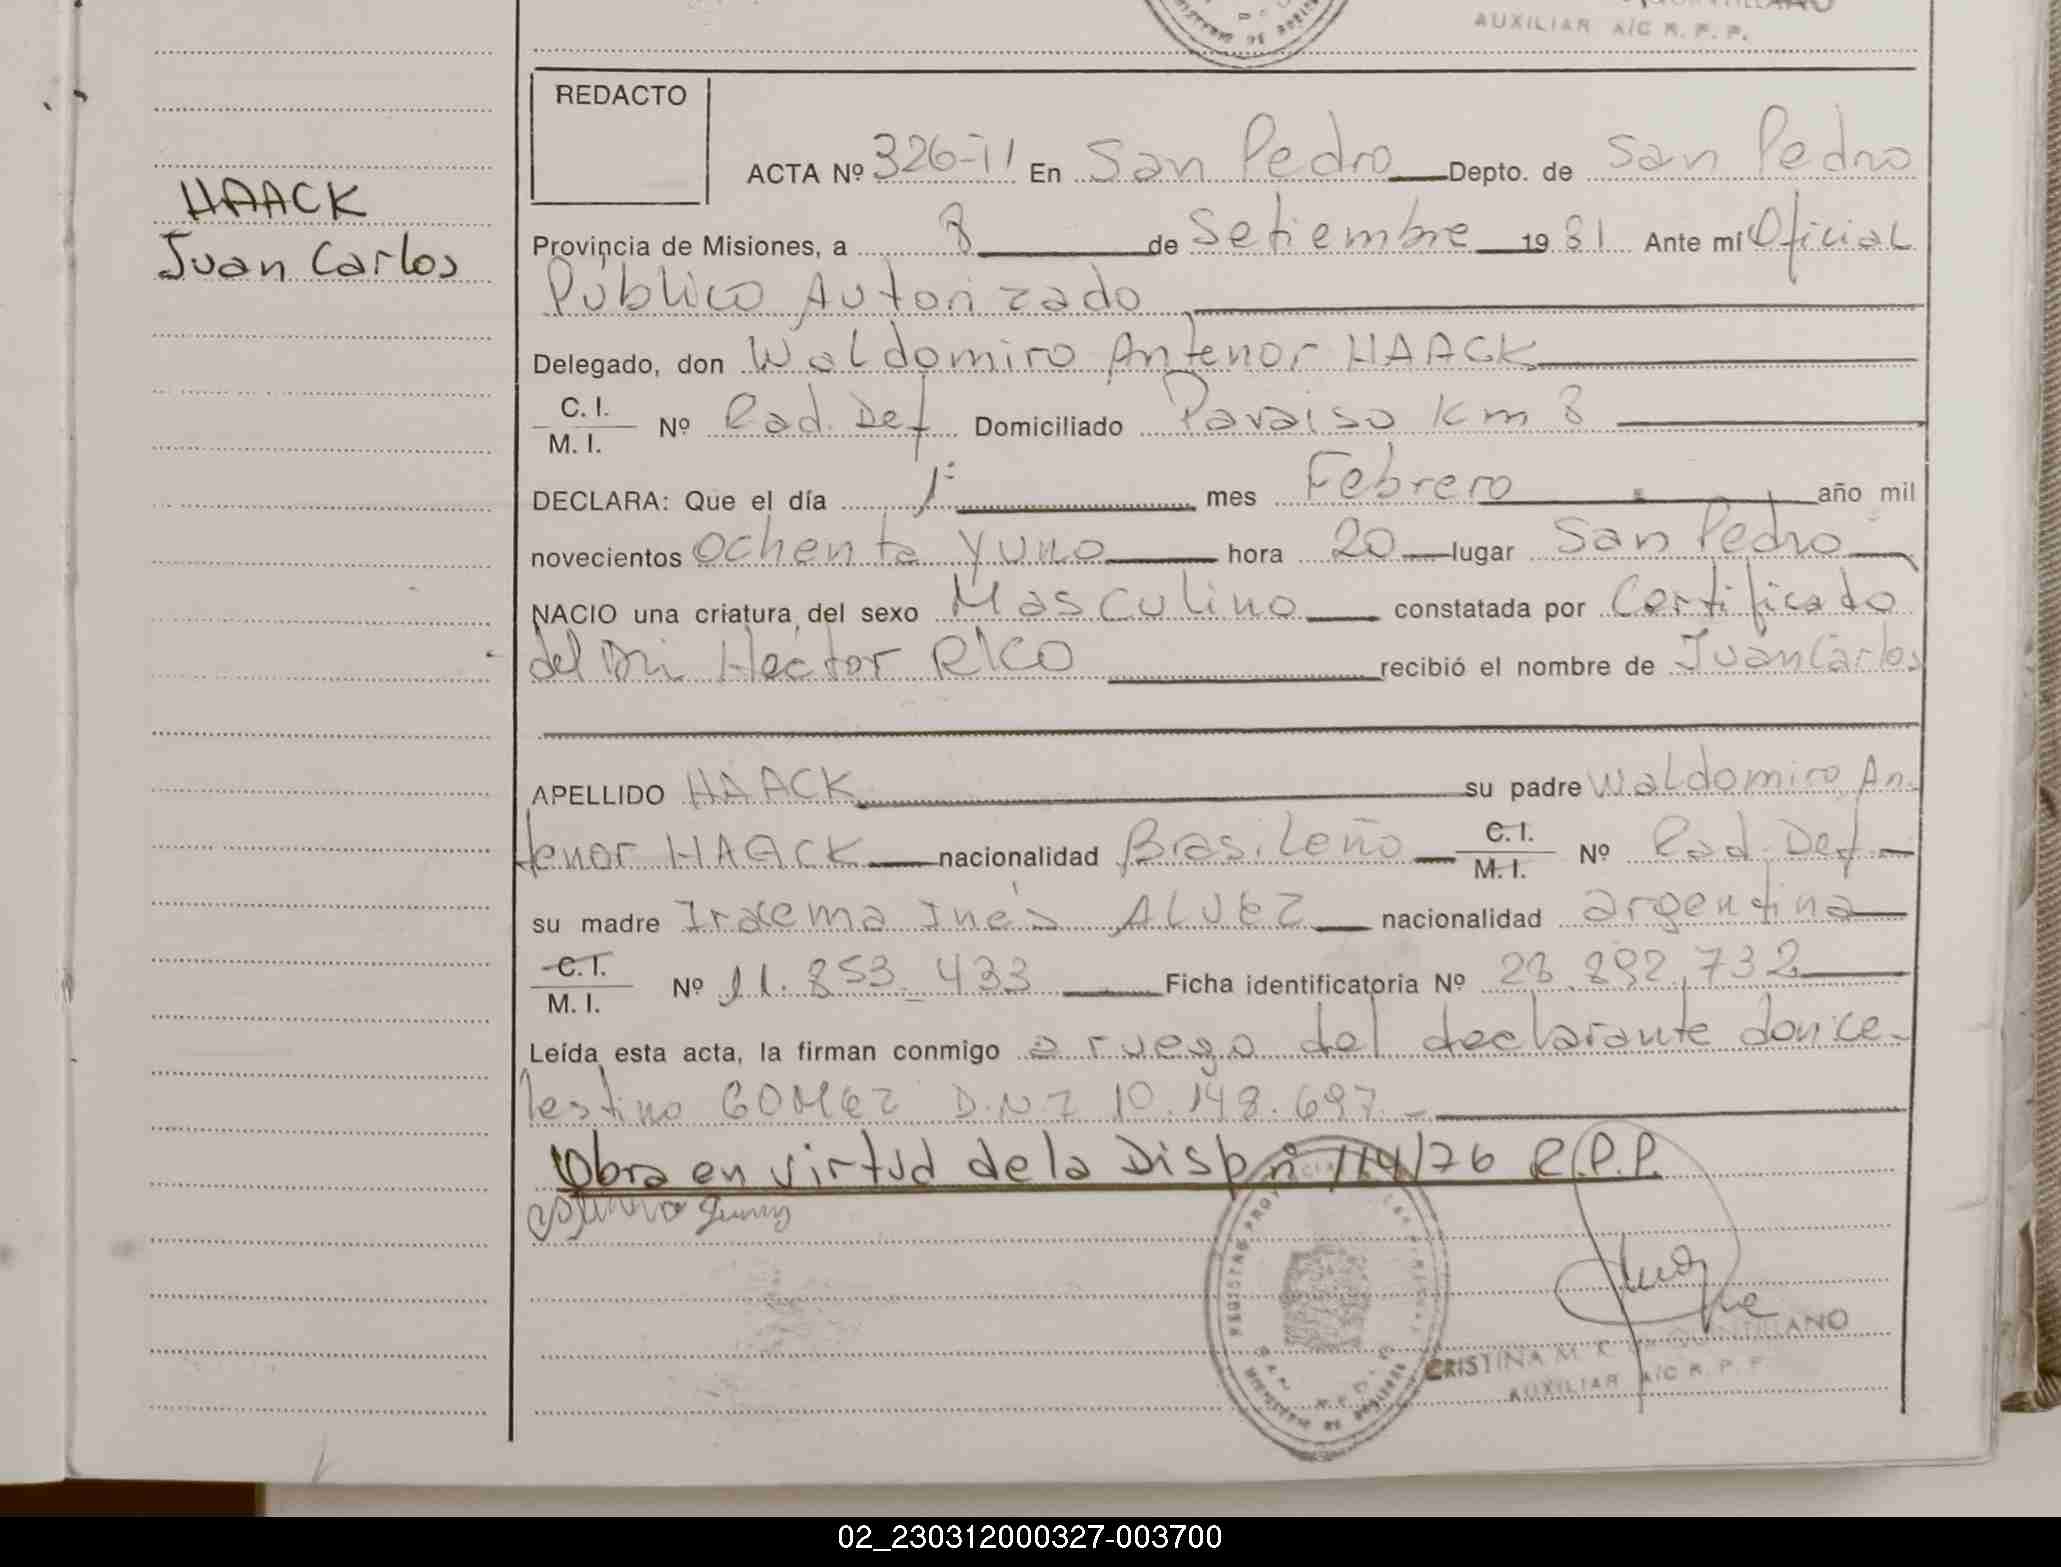 AUXILIAR A/C R. P. P.
REDACTO
ACTA Nº 326-II En San Pedro Depto. de San Pedro
HAACK
Juan Carlos
Provincia de Misiones, a 8 de Setiembre 1981 Ante mí Oficial
Público Autorizado
Delegado, don Waldomiro Antenor HAACK
C. I.
M. I. Nº Rad. Def Domiciliado Paraiso Km 8
DECLARA: Que el día 1º mes Febrero año mil
novecientos ochenta y uno hora 20 lugar San Pedro
NACIO una criatura del sexo Masculino constatada por Certificado
del Dr. Hector RICO recibió el nombre de Juan Carlos
APELLIDO HAACK su padre Waldomiro An-
tenor HAACK nacionalidad Brasileño C. I. M. I. Nº Rad. Def-
su madre Iracema Inés ALVEZ nacionalidad argentina
C. I.
M. I. Nº 11.853.433 Ficha identificatoria Nº 28.892.732
Leída esta acta, la firman conmigo a ruego del declarante don ce-
lestino GOMEZ D.N.I 10.148.697.-
Obra en virtud de la Disp nº 114/76 R.P.P.
CRISTINA M. QUINTILLANO
AUXILIAR A/C R. P. P.
02_230312000327-003700